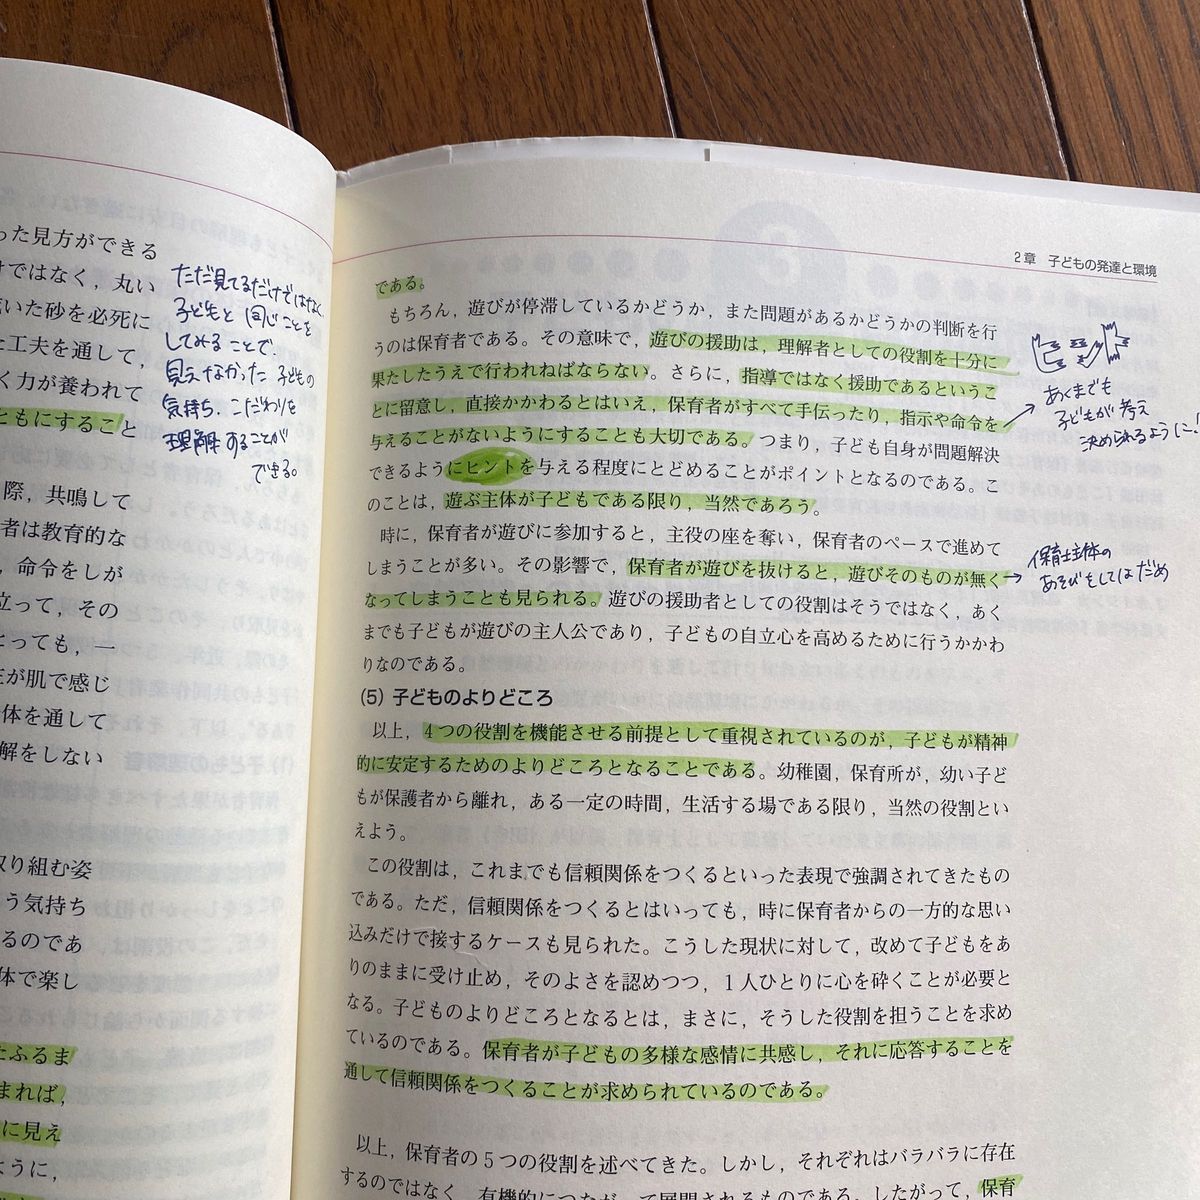 った見方ができる
けではなく，丸い
いた砂を必死に
工夫を通して，
く力が養われて
ともにすること
際，共鳴して
者は教育的な
，命令をしが
立って，その
とっても，一
が肌で感じ
体を通して
解をしない
取り組む姿
う気持ち
るのであ
体で楽し
たふるま
まれば，
に見え
ように，
ただ見てるだけではなく
子どもと同じことを
してみることで、
見えなかった子どもの
気持ち、こだわりを
理解することが
できる。
2章　子どもの発達と環境
である。
もちろん，遊びが停滞しているかどうか，また問題があるかどうかの判断を行
うのは保育者である。その意味で，遊びの援助は，理解者としての役割を十分に
果たしたうえで行われねばならない。さらに，指導ではなく援助であるというこ
とに留意し，直接かかわるとはいえ，保育者がすべて手伝ったり，指示や命令を
与えることがないようにすることも大切である。つまり，子ども自身が問題解決
できるようにヒントを与える程度にとどめることがポイントとなるのである。こ
のことは，遊ぶ主体が子どもである限り，当然であろう。
時に，保育者が遊びに参加すると，主役の座を奪い，保育者のペースで進めて
しまうことが多い。その影響で，保育者が遊びを抜けると，遊びそのものが無く
なってしまうことも見られる。遊びの援助者としての役割はそうではなく，あく
までも子どもが遊びの主人公であり，子どもの自立心を高めるために行うかかわ
りなのである。
(5) 子どものよりどころ
以上，4つの役割を機能させる前提として重視されているのが，子どもが精神
的に安定するためのよりどころとなることである。幼稚園，保育所が，幼い子ど
もが保護者から離れ，ある一定の時間，生活する場である限り，当然の役割とい
えよう。
この役割は，これまでも信頼関係をつくるといった表現で強調されてきたもの
である。ただ，信頼関係をつくるとはいっても，時に保育者からの一方的な思い
込みだけで接するケースも見られた。こうした現状に対して，改めて子どもをあ
りのままに受け止め，そのよさを認めつつ，1人ひとりに心を砕くことが必要と
なる。子どものよりどころとなるとは，まさに，そうした役割を担うことを求め
ているのである。保育者が子どもの多様な感情に共感し，それに応答することを
通して信頼関係をつくることが求められているのである。
以上，保育者の5つの役割を述べてきた。しかし，それぞれはバラバラに存在
するのではなく，有機的につながって展開されるものである。したがって，保育
ヒント
あくまでも
子どもが考え
決められるように!
保育主体の
あそびをしてはだめ